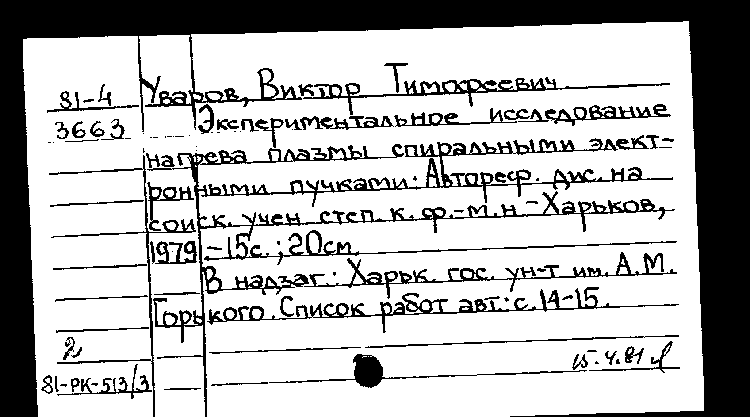 81-4 Уваров, Виктор Тимофеевич
3663 Экспериментальное исследование
нагрева плазмы спиральными элект-
ронными пучками: Автореф. дис. на
соиск. учен. степ. к. ф.-м.н.-Харьков,
1979.-15с.; 20см.
В надзаг.: Харьк. гос. ун-т им. А.М.
Горького. Список работ авт.: с. 14-15.
2
15.4.81
81-РК-513/3